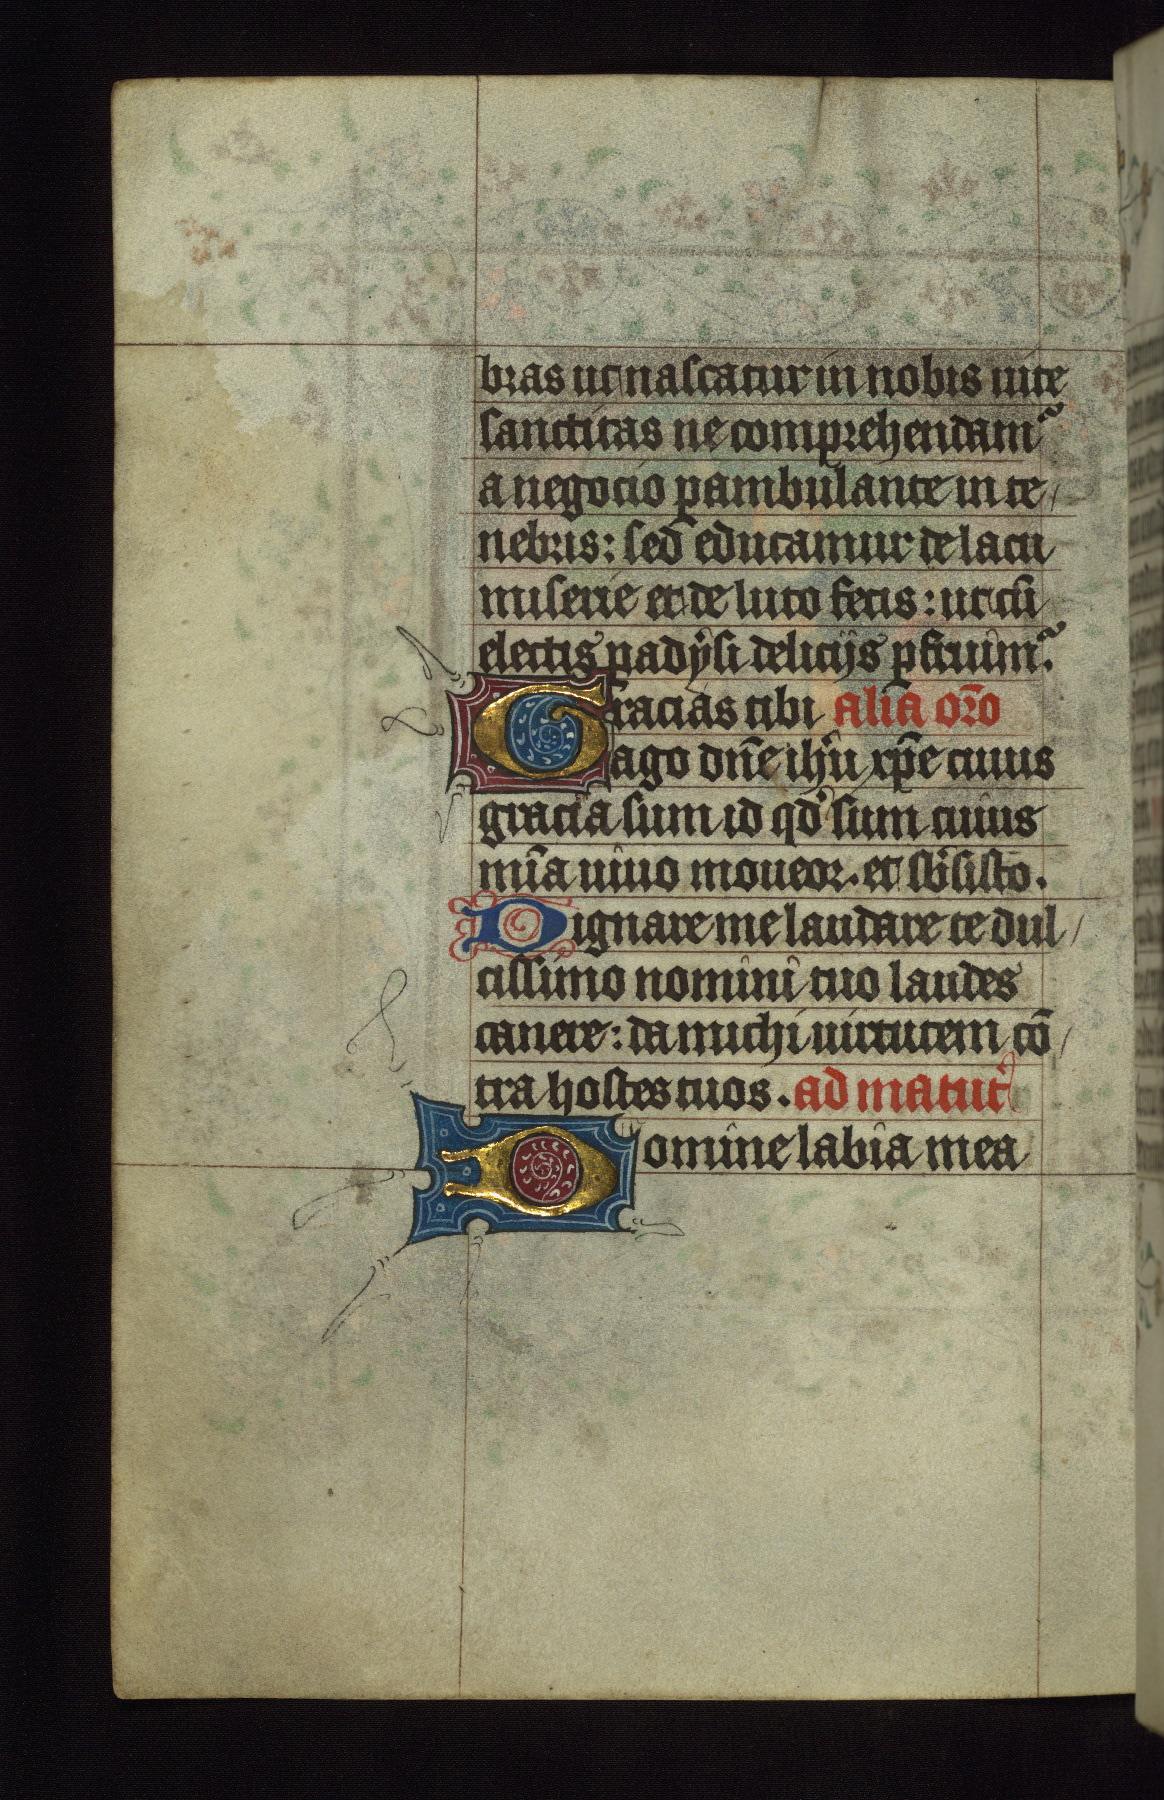 bras ut nascatur in nobis uite
sanctitas ne comprehendamꝰ
a negocio ꝑambulante in te/
nebris: sed educamur de lacu
miserie et de luto fecis: ut cū
electis ꝑadysi delicijs ꝑfruimꝰ.
Gracias tibi alia or̄o
ago dn̄e ih̄u xp̄e cuius
gracia sum id qd̓ sum cuius
mīa uiuo moueor. et sb̄sisto.
Dignare me laudare te dul/
cissimo nomini tuo laudes
canere: da michi uirtutem cō/
tra hostes tuos. ad matut̓
Domine labia mea